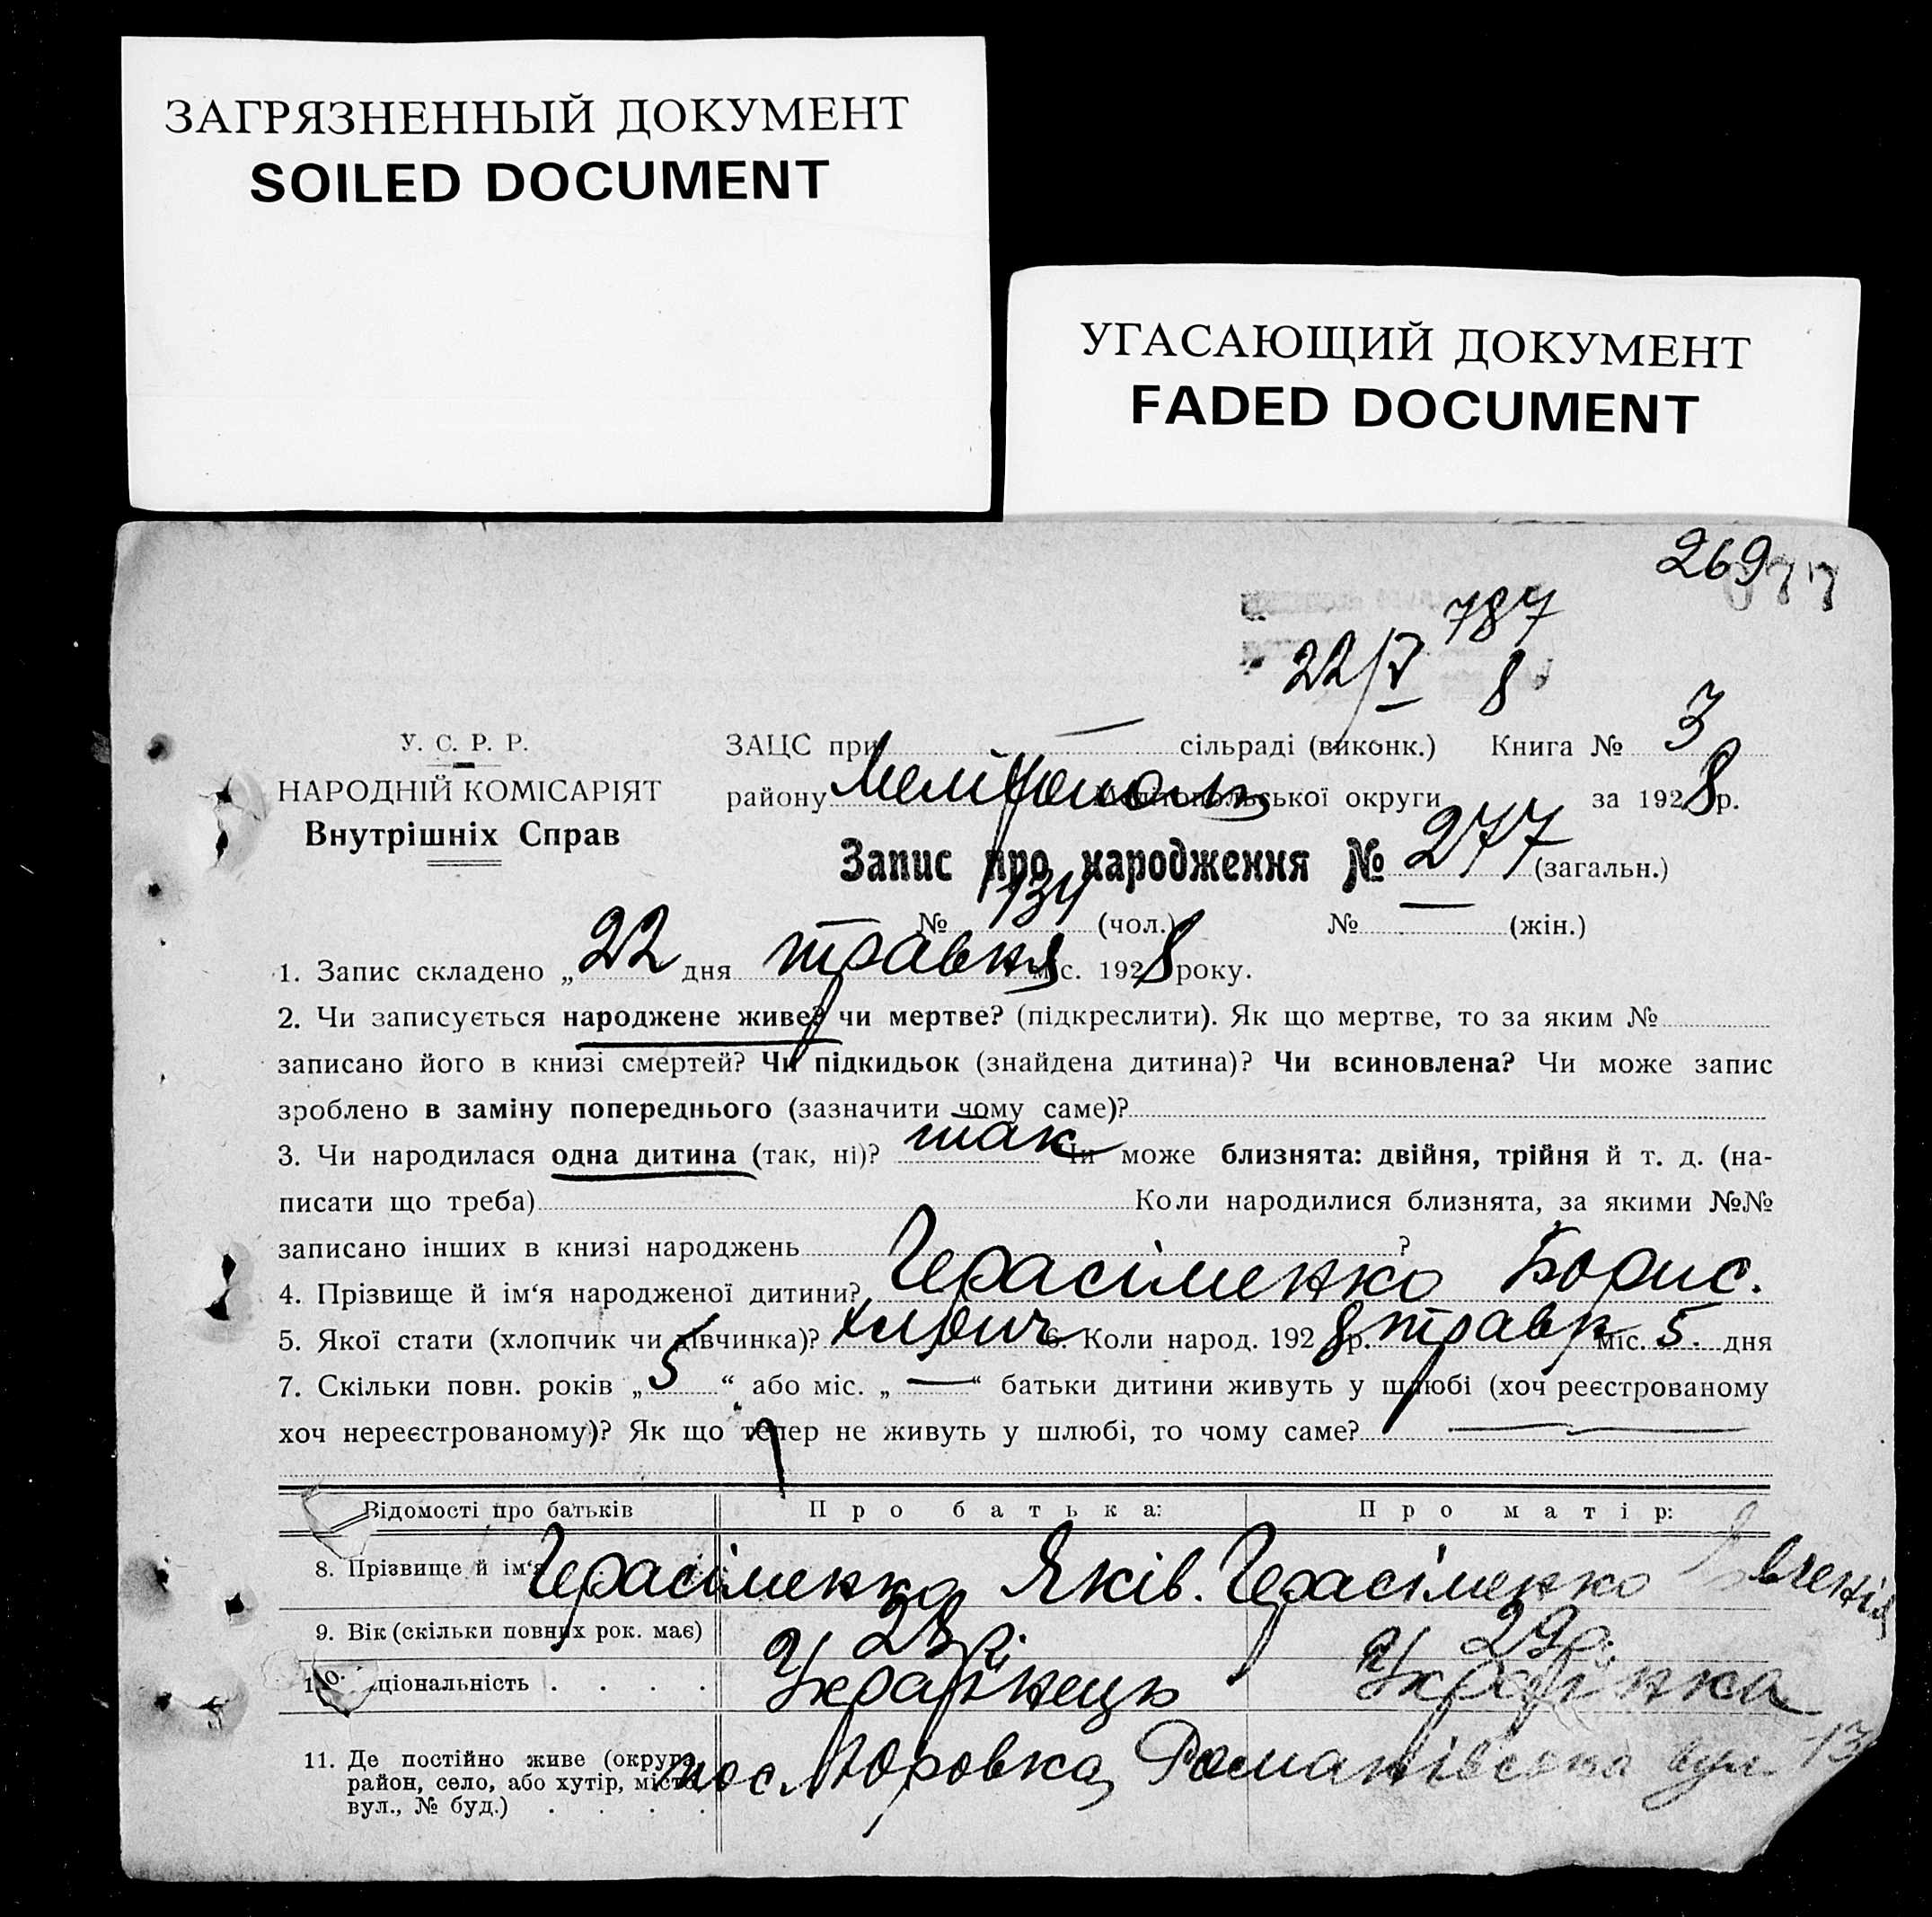 ЗАГРЯЗНЕННЫЙ ДОКУМЕНТ
SOILED DOCUMENT
УГАСАЮЩИЙ ДОКУМЕНТ
FADED DOCUMENT
269
787
22/V 8
У. С. Р. Р.
НАРОДНІЙ КОМІСАРІЯТ
Внутрішніх Справ
ЗАЦС при — сільраді (виконк.) Книга № 3
району Мелітополь Мелітопольської округи за 1928 р.
Запис про народження № 277 (загальн.)
№ 134 (чол.) № — (жін.)
1. Запис складено „ 22 дня травня міс. 1928 року.
2. Чи записується народжене живе? чи мертве? (підкреслити). Як що мертве, то за яким №
записано його в книзі смертей? Чи підкидьок (знайдена дитина)? Чи всиновлена? Чи може запис
зроблено в заміну попереднього (зазначити чому саме)?
3. Чи народилася одна дитина (так, ні)? так Чи може близнята: двійня, трійня й т. д. (на-
писати що треба) Коли народилися близнята, за якими №№
записано інших в книзі народжень ?
4. Прізвище й ім‘я народженої дитини? Герасіменко Борис.
5. Якої стати (хлопчик чи дівчинка)? 6. Коли народ. 1928 р. травн міс. 5. дня
7. Скільки повн. років „ 5 “ або міс. „ — “ батьки дитини живуть у шлюбі (хоч реєстрованому
хоч нереєстрованому)? Як що тепер не живуть у шлюбі, то чому саме? —
Відомості про батьків Про батька: Про матір:
8. Прізвище й ім‘я Герасіменко Яків. Герасіменко Євгенія
9. Вік (скільки повних рок. має) 28 р. 29 р.
10. Національність . . . . Українець Українка
11. Де постійно живе (округа,
район, село, або хутір, місто,
вул., № буд.) . . . . пос. Юровка, Романівська вул. 13